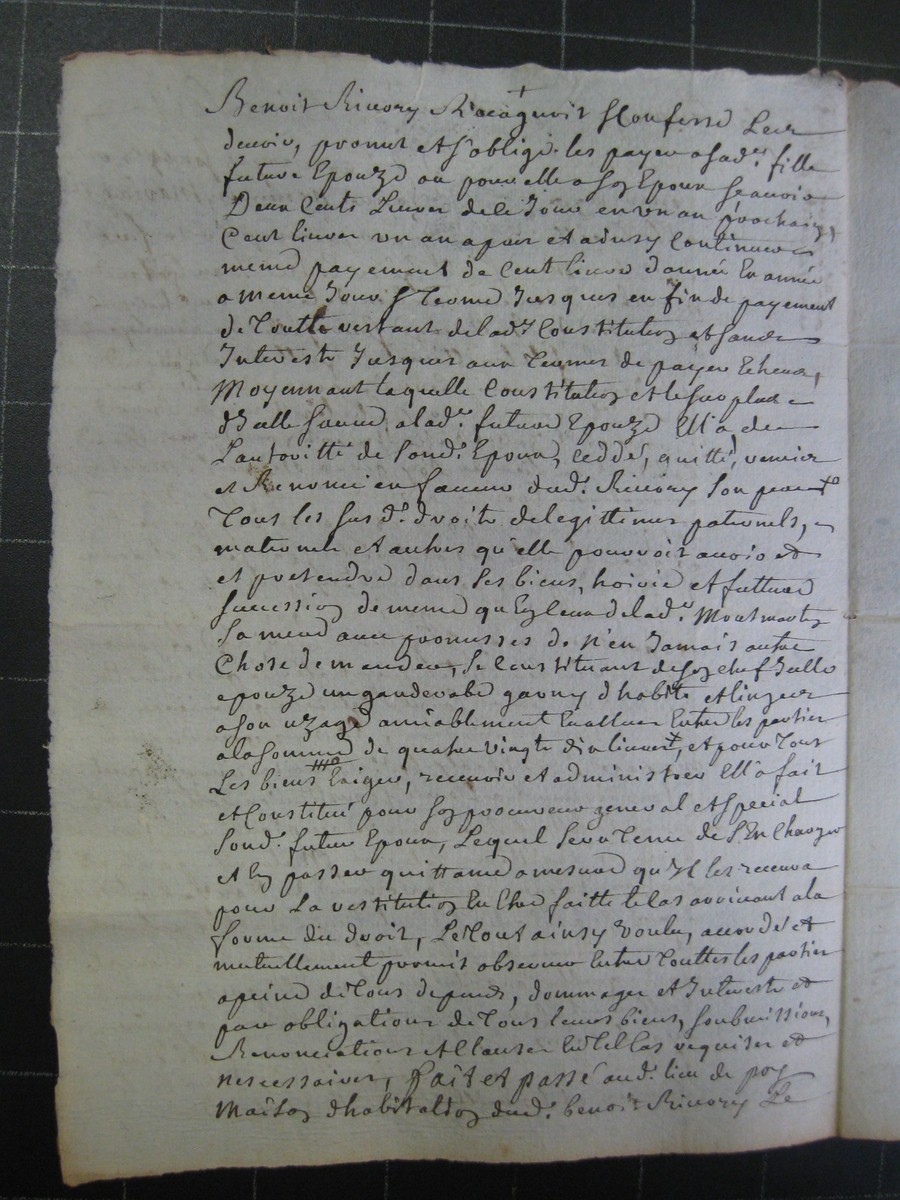 Benoit Riuory R'acognoit & Confesse Leur
deuoir, promet et s'oblige les payer a sad.e fille
future Epouze ou pour elle a soz Epoux scauoir
Deux Cents Liures de ce Jour en vn an prochain,
Cent liures vn an apres et ainsy Continuer
meme payement de Cent liures d'année En année
a meme Jour & Terme Jusques en fin de payement
de Toutte restant de lad.e Constitution et sans
Interests Jusques aux Termes de payer Echeus,
Moyennant laquelle Constitution et le surplus
d'Icelle sauue a lad.e future Epouze Ell'a de
L'autoritté de Sond. Epoux, ceddé, quitté, remis
et Renoncé en faueur dud. Riuory son pere
Tous les sus d.s droits de legittimes paternels,
maternels et autres qu'elle pourroit auoir et
et pretendre dans ses biens, hoirie et future
succession de meme qu'En ceux de lad.e Montmartin
Sa mere auec promesses de N'en Jamais autre
Chose demander, Se Constituant de soz chef Jcelle
epouze un garderobe garny d'habits et linges
a son uzage amiablement Eualluer Entre les parties
a la somme de quatre vingts dix liures, et pour Tous
Les biens Exiger, receuoir et administrer Ell'a fait
et Constitué pour soz procureur general et special
Sond. futur Epoux, Lequel sera Tenu de s'En Charger
et En passer quittance a mesure qu'Jl les receura
pour La restitution En Etre faitte le cas arriuant a la
forme du droit, Le Tout ainsy voulu, accordé et
mutuellement promis obseruer Entre Touttes les parties
a peine de Tous depends, dommages et Interests et
par obligations de Tous leurs biens, soubmissions,
Renonciations et Clauses En tel Cas requises et
nescessaires, fait et passé aud. lieu de poy
Maison d'habitation dud. benoit Riuory Le